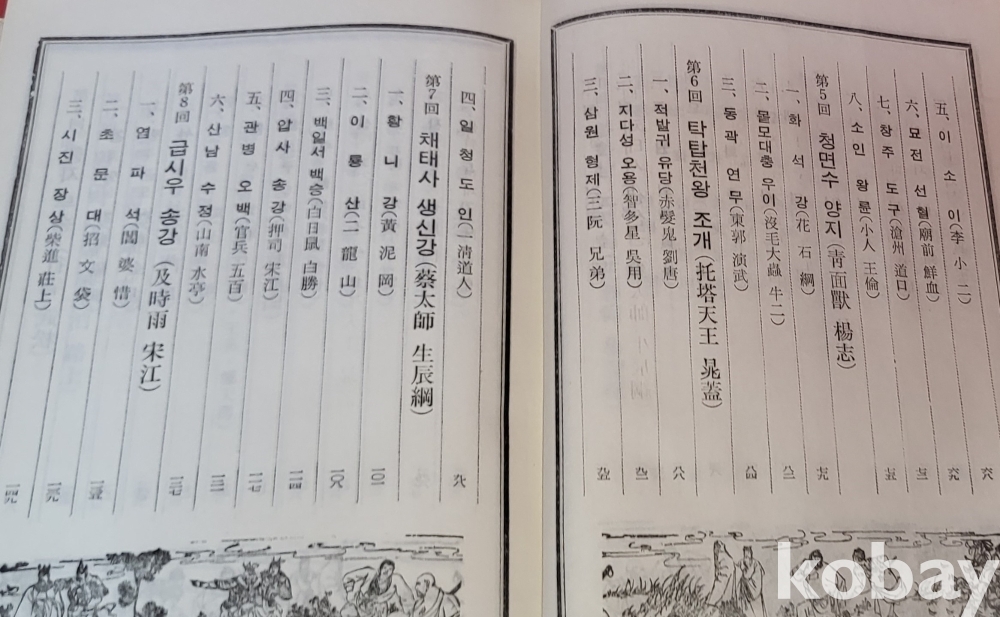 五、이 소 이(李 小 二) 六六
六、묘전 선혈(廟前 鮮血) 六九
七、창주 도구(滄州 道口) 七三
八、소인 왕륜(小人 王倫) 七五
第5回 청면수 양지(靑面獸 楊志)
一、화 석 강(花 石 綱) 七九
二、몰모대충 우이(沒毛大蟲 牛二) 八二
三、동곽 연무(東郭 演武) 八四
第6回 탁탑천왕 조개(托塔天王 晁蓋)
一、적발귀 유당(赤髮鬼 劉唐) 八八
二、지다성 오용(智多星 吳用) 九二
三、삼원 형제(三阮 兄弟) 九五
四、일 청 도 인(一淸道人) 九七
第7回 채태사 생신강(蔡太師 生辰綱)
一、황 니 강(黃 泥 岡) 一〇一
二、이 룡 산(二 龍 山) 一〇八
三、백일서 백승(白日鼠 白勝) 一一四
四、압사 송강(押司 宋江) 一一七
五、관병 오백(官兵 五百) 一二一
六、산남 수정(山南 水亭) 一二七
第8回 급시우 송강(及時雨 宋江)
一、염 파 석(閻 婆 惜) 一三五
二、초 문 대(招 文 袋) 一三九
三、시진 장상(柴進 莊上) 一四九
kobay